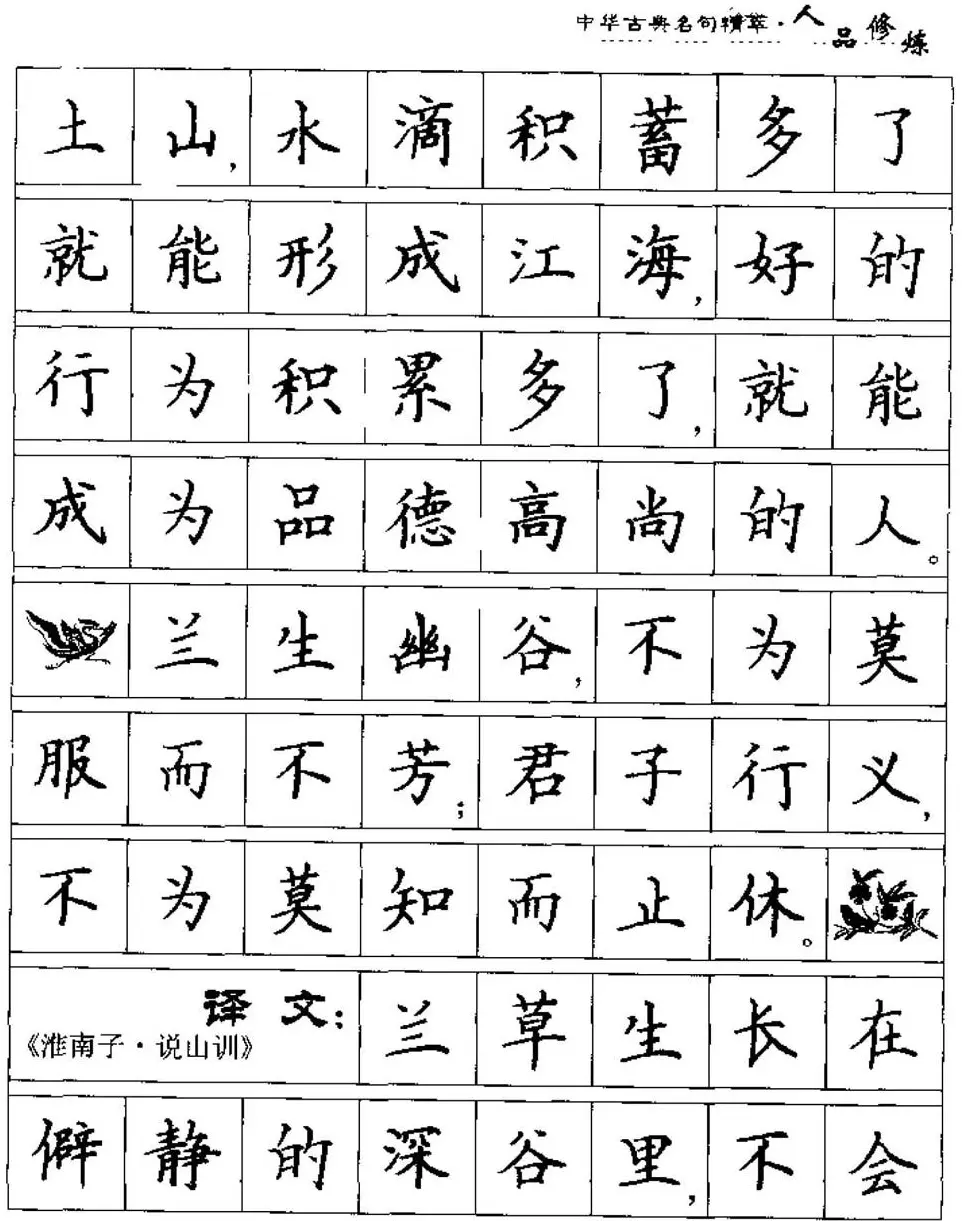 中华古典名句精萃·人品修炼
土山,水滴积蓄多了
就能形成江海,好的
行为积累多了,就能
成为品德高尚的人。
兰生幽谷,不为莫
服而不芳;君子行义,
不为莫知而止休。
译文:兰草生长在
《淮南子·说山训》
僻静的深谷里,不会